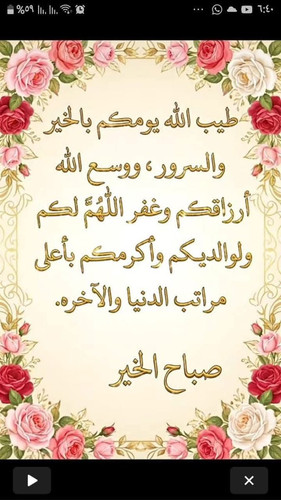 %٥٩
٦:٤٠
طيب الله يومكم بالخير
والسرور، ووسع الله
أرزاقكم وغفر اللَّهُمَّ لكم
ولوالديكم وأكرمكم بأعلى
مراتب الدنيا والآخره.
صباح الخير